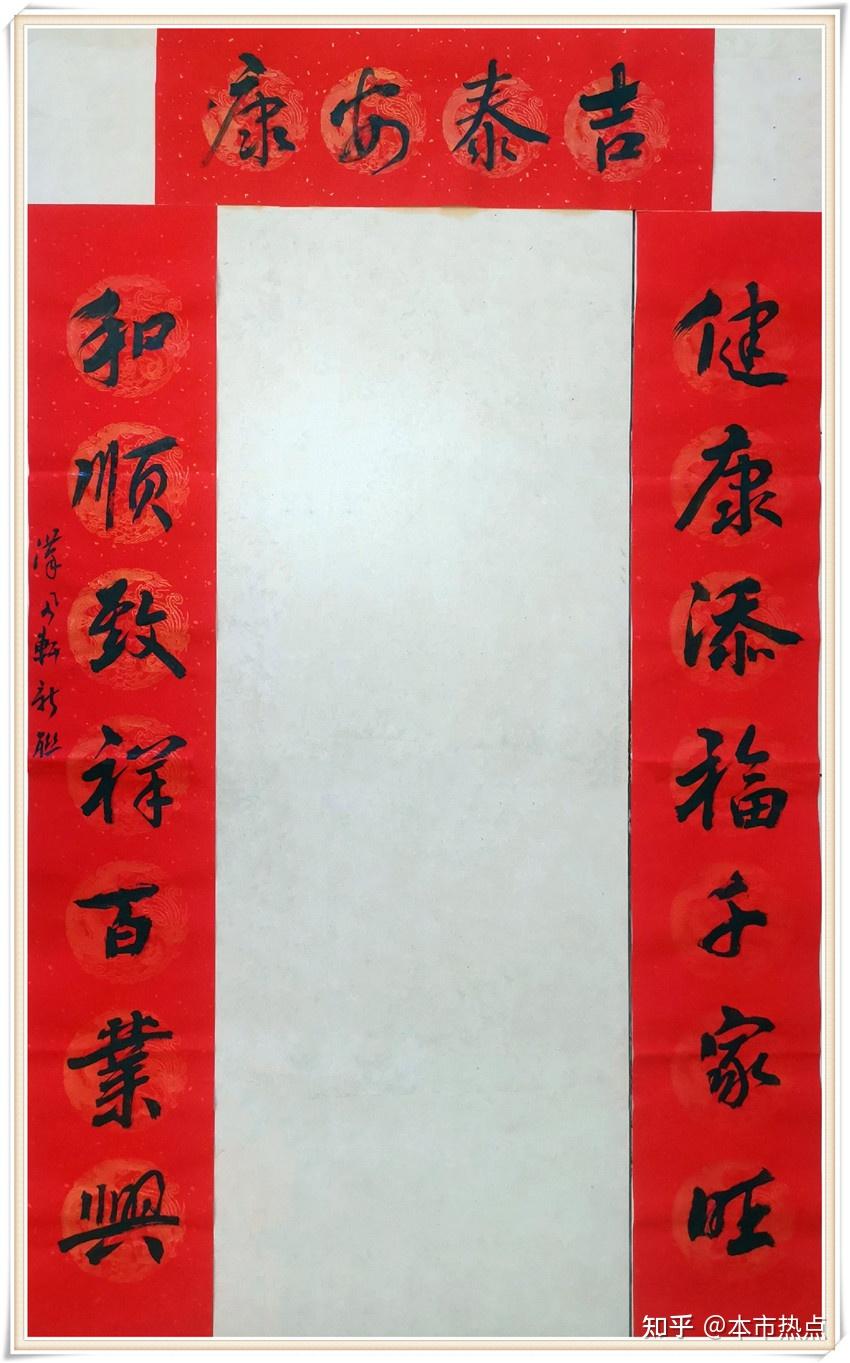 吉泰安康
健康添福千家旺
和顺致祥百業興
漢軒新聯
知乎 @本市热点